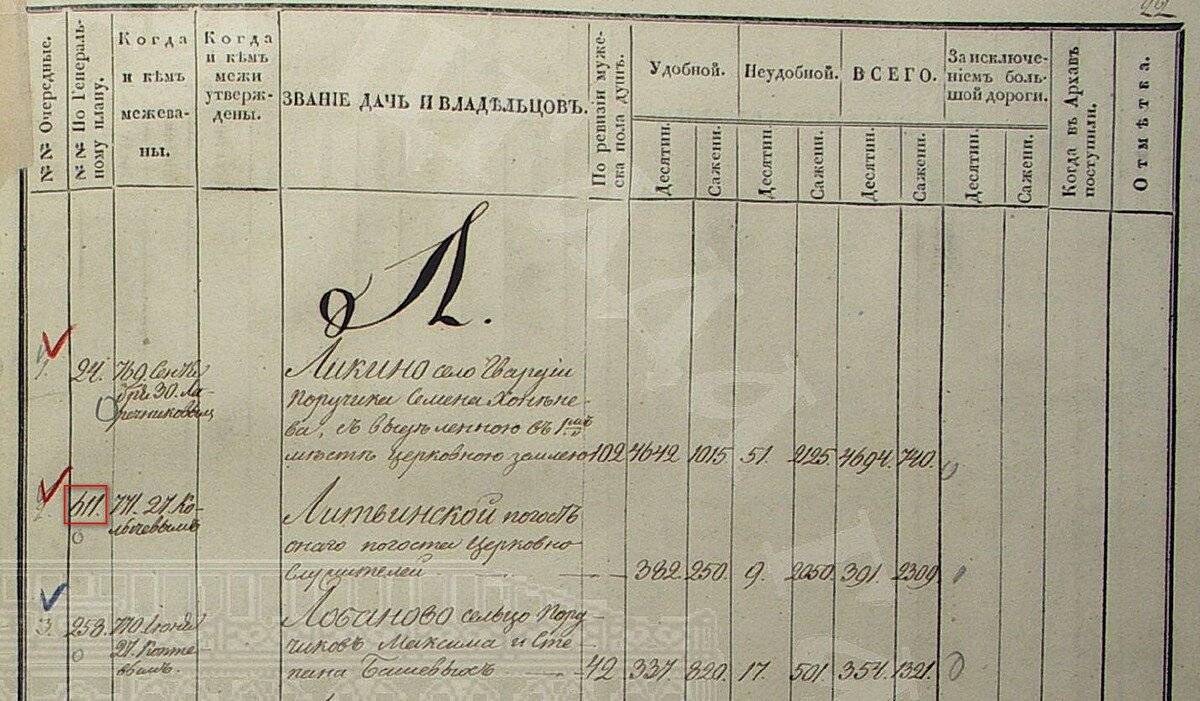 22
№№ Очередные.
№№ По Генераль-
ному плану.
Когда
и кѣмъ
межева-
ны.
Когда
и кѣмъ
межи
утверж-
дены.
ЗВАНІЕ ДАЧЬ И ВЛАДѢЛЬЦОВЪ.
По ревизіи муже-
ска пола душъ.
Удобной.
Десятин.
Сажени.
Неудобной.
Десятин.
Сажени.
ВСЕГО.
Десятин.
Сажени.
За исключе-
ніемъ боль-
шой дороги.
Десятин.
Сажени.
Когда въ Архивъ
поступили.
Отмѣтка.
Л.
1. 24. 770
30.
Ликино село Гвардіи
Поручика Семена Хоненѣ-
ва, съ вырѣзанною въ
мѣстѣ церковною землею 102 4642 1015 51. 2125 4694. 740.
2. 611. 771. 27
Литвинской погостъ
онаго погоста Церковно-
служителей 382 250. 9. 2050 391. 2309
3. 253. 770 Іюня
27.
Лобаново сельцо Пору-
чиковъ Максима и Сте-
пана 42 337. 820. 17. 501. 354. 1321.